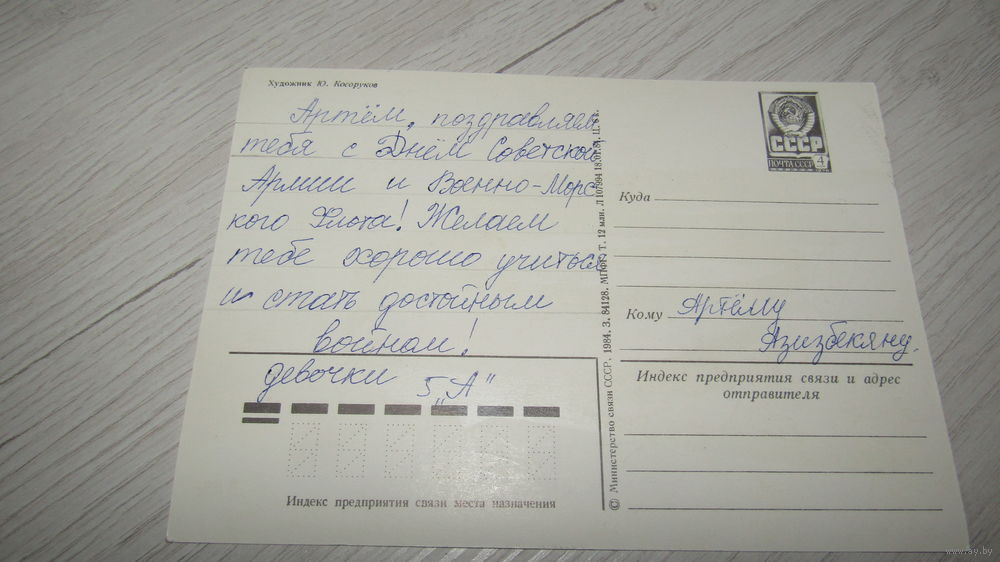 Художник Ю. Косоруков
Артём, поздравляем
тебя с Днём Советской
Армии и Военно-Морс
кого Флота! Желаем
тебе хорошо учиться
и стать достойным
воином!
девочки 5 „А"
Индекс предприятия связи места назначения
© Министерство связи СССР. 1984. З. 84128. МПФГ. Т. 12 млн.
СССР
ПОЧТА СССР 4
Куда
Кому Артёму
Азизбекяну.
Индекс предприятия связи и адрес
отправителя
www.ay.by